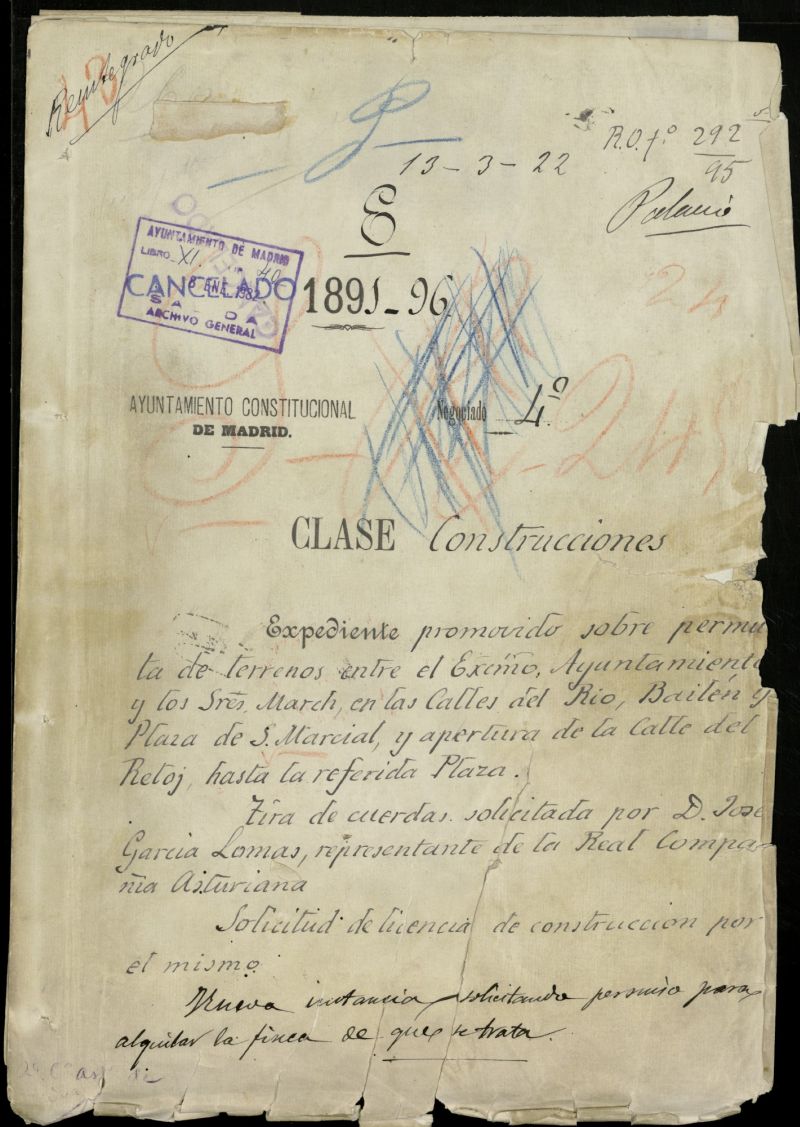 Reintegrado
43
13-3-22
R.O. f.º 292
95
Palacio
E
AYUNTAMIENTO DE MADRID
LIBRO XI nº 40
8 ENE. 1982
CANCELADO
SALIDA
ARCHIVO GENERAL
1891-96.
24
AYUNTAMIENTO CONSTITUCIONAL
DE MADRID.
Negociado 4.º
CLASE Construcciones
Expediente promovido sobre permu
ta de terrenos entre el Excmo. Ayuntamiento
y los Sres. March, en las Calles del Rio, Bailén y
Plaza de S. Marcial, y apertura de la Calle del
Reloj, hasta la referida Plaza.
Tira de cuerdas solicitada por D. José
Garcia Lomas, representante de la Real Compa-
ñia Asturiana
Solicitud de licencia de construccion por
el mismo.
Nueva instancia solicitando permiso para
alquilar la finca de que se trata.